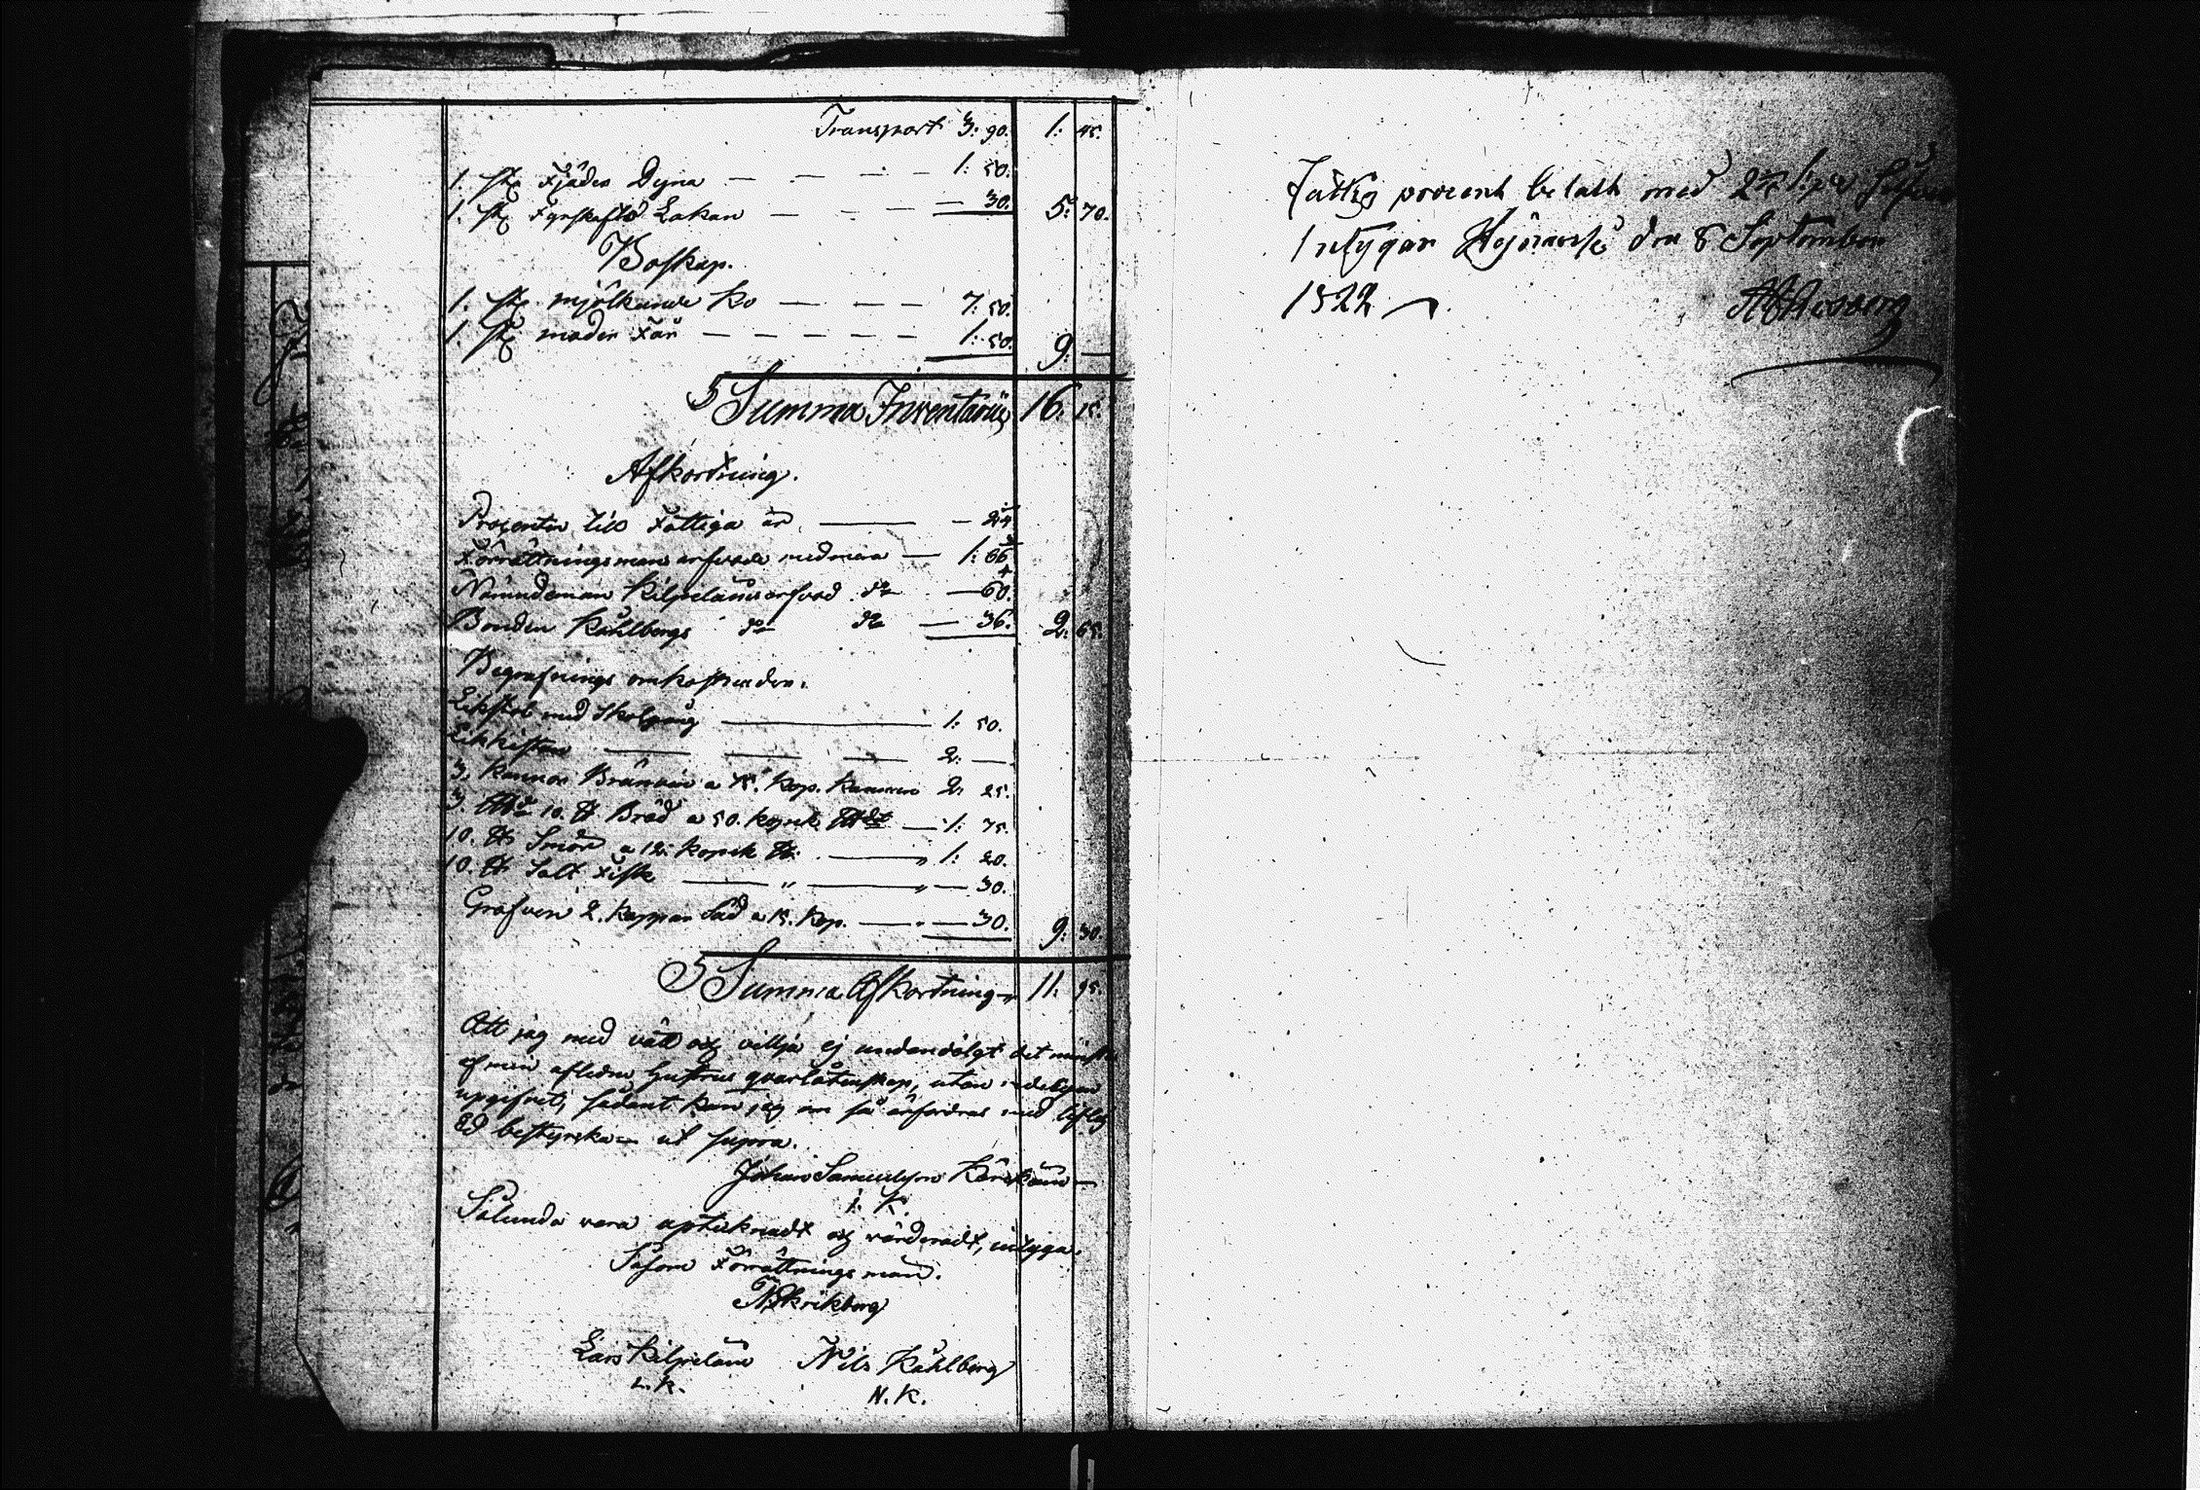 Transport 3: 90. 1: 45.
1. st. Fjäder Dyna — — — — 1: 50.
1. st. Fyrskaftad Lakan — — — 30. 5: 70.
Boskap.
1. st. mjölkande Ko — — — 7: 50.
1. st. moder Får — — — — — 1: 50. 9: —
Summa Inventarii 16. 15.
Afkortning.
Procenten till Fattiga är — — 2¼
Förrättningsmans arfvode med mera — 1: 66¾
Nämndeman Kilpeläins arfvod do — 60.
Bonden Kåhlbergs do do — 36. 2: 65.
Begrafnings omkostnaden.
Likstol med — 1: 50.
Likkistan — — — — 2: —
3. Kannor Bränvin a 75. Kop. Kannan 2: 25.
3. 10. ℔ Bröd a 50. kopek — 1: 75.
10. ℔ Smör a 12. Kopek ℔. — 1: 20.
10. ℔ Salt Fisk — " — " — 30.
Grafven 2. Kappar Säd a 15. Kop. — " — 30. 9: 30.
Summa Afkortning 11: 95.
Att jag med vett och vilja ej undandölgt det minsta
af min aflidne Hustrus qvarlåtenskap, utan redeligen
uppgifvit, sådant kan jag om så ärfordras med liflig
Ed bestyrka — ut supra.
Johan Samuelson
I. K.
Sålunda vara uptecknadt och värderadt, intyga.
Såsom Förrättningsman.
Lars Kilpeläin Nils Kåhlberg
L. K. N. K.
Fattig procent betalt med 2¼
Intygar den 8 September
1822